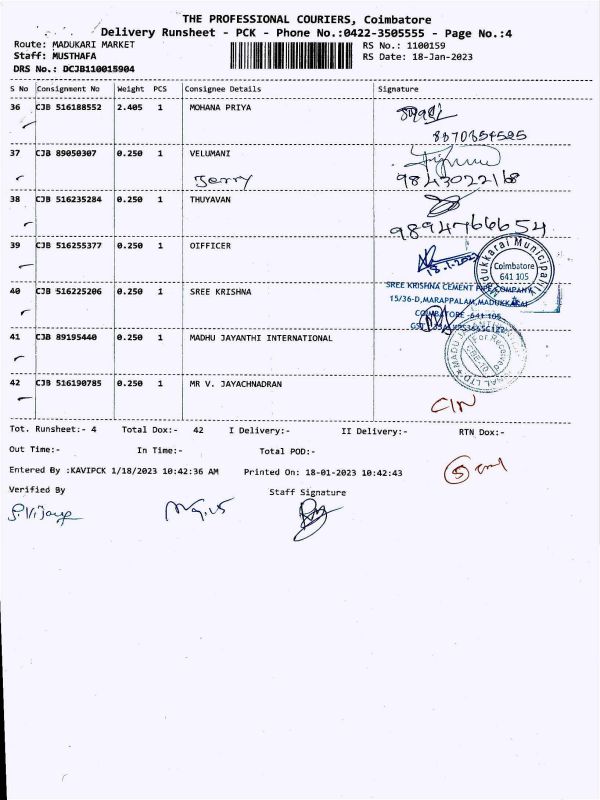 THE PROFESSIONAL COURIERS, Coimbatore
Delivery Runsheet - PCK - Phone No.:0422-3505555 - Page No.:4
Route: MADUKARI MARKET
RS No.: 1100159
Staff: MUSTHAFA
RS Date: 18-Jan-2023
DRS No.: DCJB110015904
S No Consignment No Weight PCS Consignee Details Signature
36 CJB 516188552 2.405 1 MOHANA PRIYA
8870854585
37 CJB 89050307 0.250 1 VELUMANI
Jerry 9843022168
38 CJB 516235284 0.250 1 THUYAVAN
9894766654
39 CJB 516255377 0.250 1 OIFFICER
Madukkarai Municipality
Coimbatore
641 105
40 CJB 516225206 0.250 1 SREE KRISHNA
SREE KRISHNA CEMENT PIPE COMPANY
15/36-D,MARAPPALAM,MADUKKARAI
COIMBATORE -641 105
41 CJB 89195440 0.250 1 MADHU JAYANTHI INTERNATIONAL
42 CJB 516190785 0.250 1 MR V. JAYACHNADRAN
CIN
Tot. Runsheet:- 4 Total Dox:- 42 I Delivery:- II Delivery:- RTN Dox:-
Out Time:- In Time:- Total POD:-
Entered By :KAVIPCK 1/18/2023 10:42:36 AM Printed On: 18-01-2023 10:42:43
Verified By Staff Signature